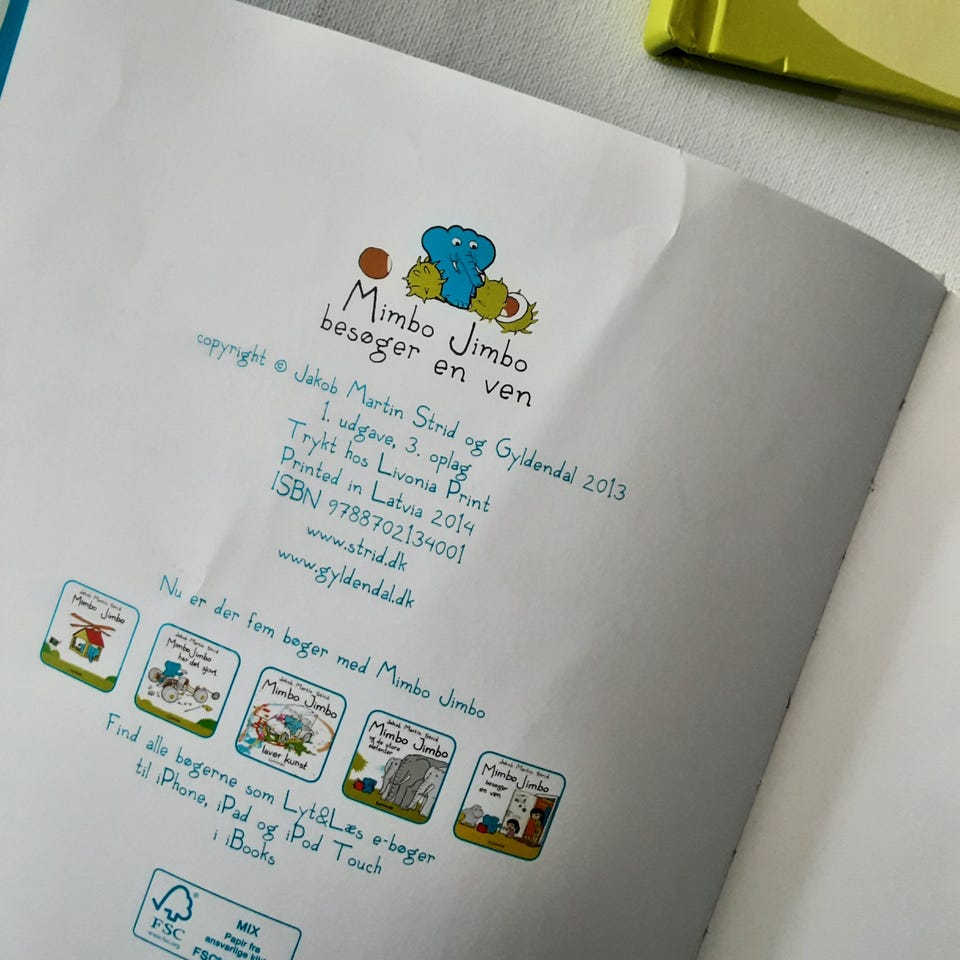 Mimbo Jimbo
besøger en ven
copyright © Jakob Martin Strid og Gyldendal 2013
1. udgave, 3. oplag
Trykt hos Livonia Print
Printed in Latvia 2014
ISBN 9788702134001
www.strid.dk
www.gyldendal.dk
Nu er der fem bøger med Mimbo Jimbo
Jakob Martin Strid
Mimbo Jimbo
Jakob Martin Strid
Mimbo Jimbo
har det sjovt
Jakob Martin Strid
Mimbo Jimbo
laver kunst
Jakob Martin Strid
Mimbo Jimbo
og de store
elefanter
Jakob Martin Strid
Mimbo Jimbo
besøger
en ven
Find alle bøgerne som Lyt&Læs e-bøger
til iPhone, iPad og iPod Touch
i iBooks
FSC
www.fsc.org
MIX
Papir fra
ansvarlige
FSC